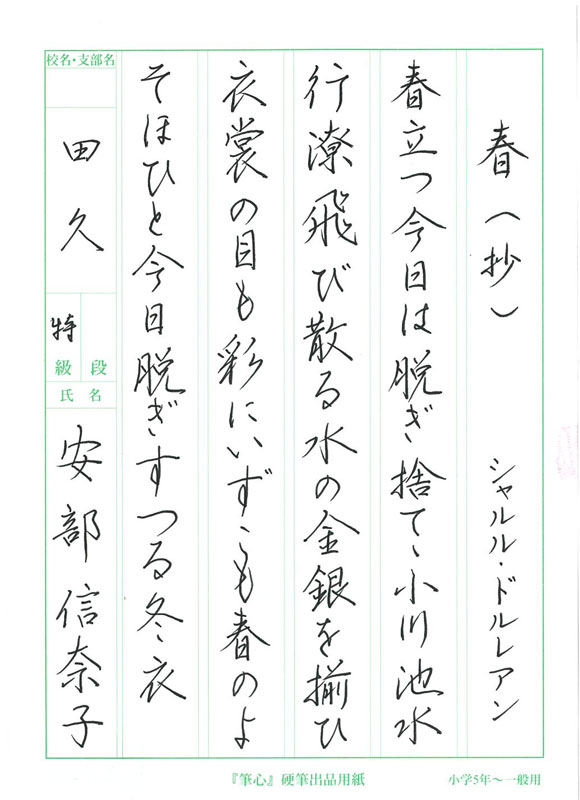 春(抄) シャルル・ドルレアン
春立つ今日は脱ぎ捨てゝ小川池水
行潦飛び散る水の金銀を揃ひ
衣裳の目も彩にいずこも春のよ
そほひと今日脱ぎすつる冬衣
校名・支部名
田久
特
級段
氏名
安部信奈子
『筆心』硬筆出品用紙
小学5年〜一般用